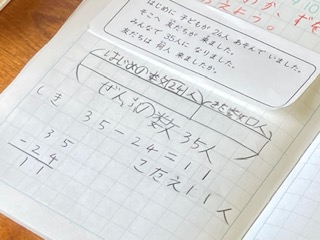 はじめに 子どもが 24人 あそんで いました。
そこへ 友だちが 来ました。
みんなで 35人に なりました。
友だちは 何人 来ましたか。
はじめの数(24人)
ぜんぶの数 35人
しき 35-24=11
こたえ11人
35
-24
11